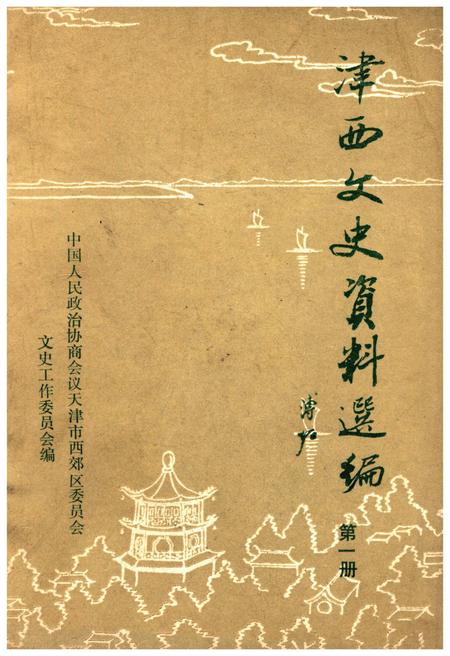 津西文史資料選編
第一册
溥佐
中国人民政治协商会议天津市西郊区委员会
文史工作委员会编